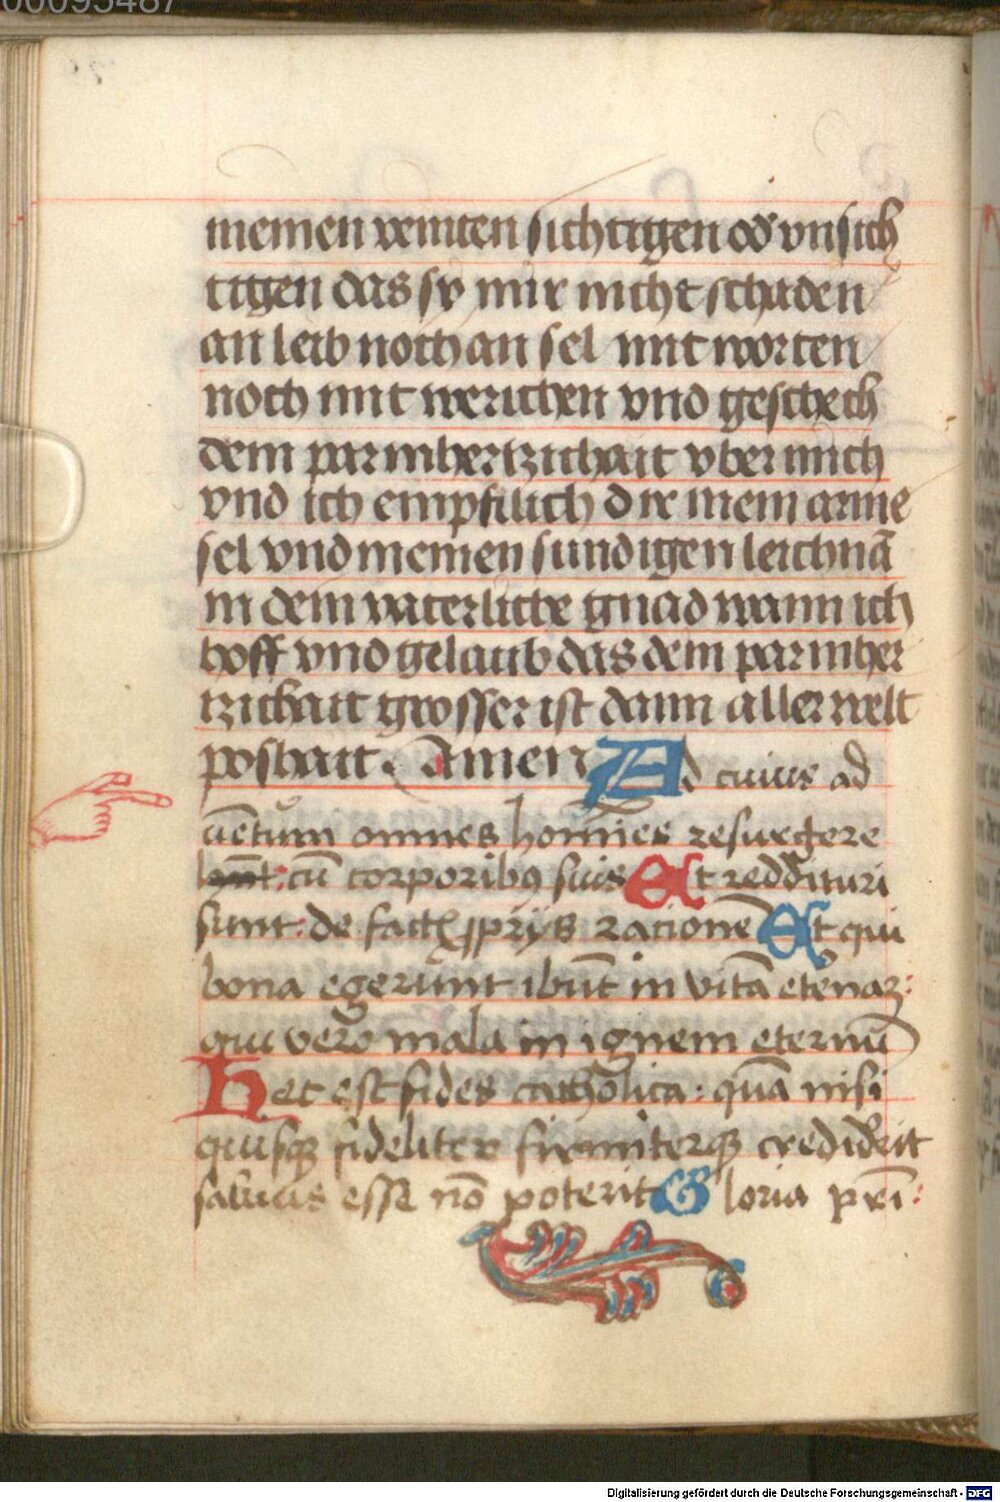 00095487
meinen veinten sichtigen od̕ vnsich
tigen das sy mir nicht schaden
an leib noch an sel mit worten
noch mit werichen vnd geschech
dein parmhertzichait vber mich
vnd ich empfilich dir mein arme
sel vnd meinen sundigen leichnā
in dein vaterliche gnad wann ich
hoff vnd gelaub das dein parmher
tzichait grosser ist dann aller welt
poshait. Amen Ad cuius ad
uētum omnes homīes resurgere
hn̄t: cū corporibꝯ suis Et reddituri
sunt: de factꝭ ꝓprijs racionē Et qui
bona egerunt ibūt in vitā et̕enaꝫ:
qui vero mala in ignem eternū
Hec est fides catholica: quā nisi
quisqꝫ fideliter firmiterqꝫ credid̕it
saluus esse nō poterit Gloria pr̄i:
Digitalisierung gefördert durch die Deutsche Forschungsgemeinschaft - DFG